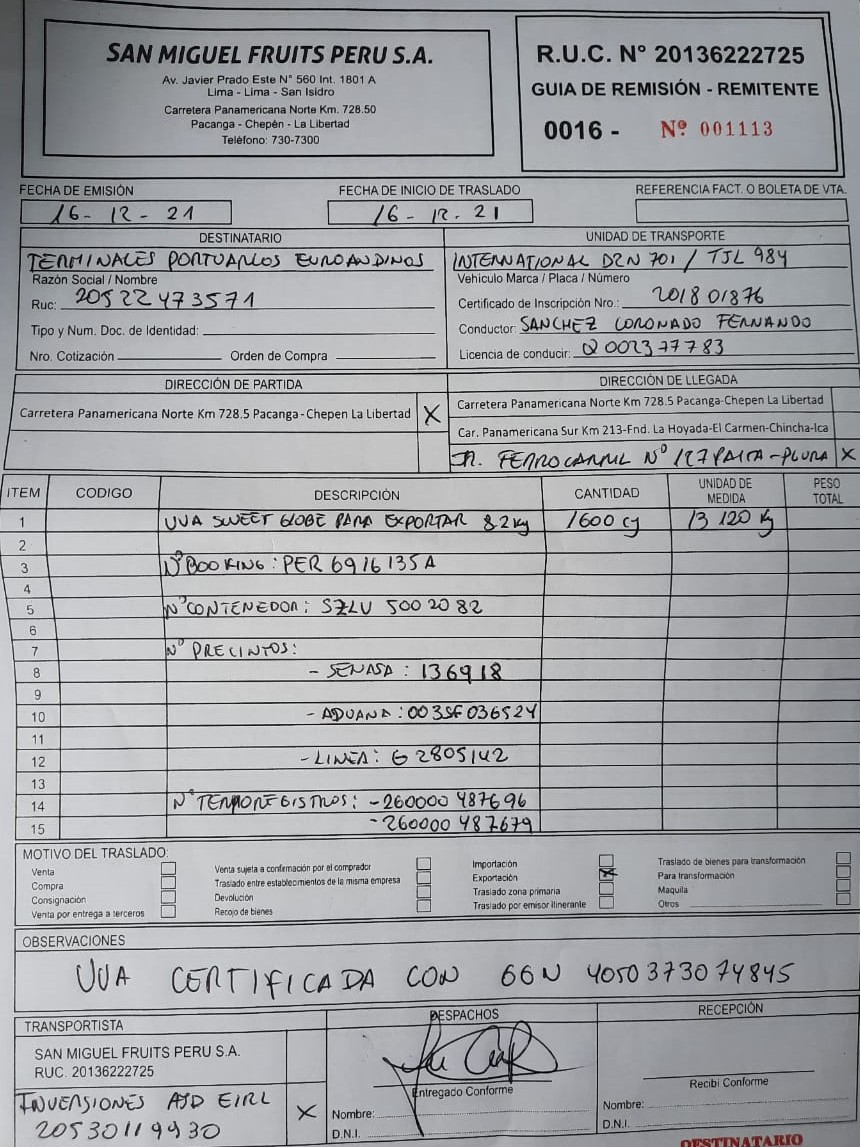 SAN MIGUEL FRUITS PERU S.A.
Av. Javier Prado Este N° 560 Int. 1801 A
Lima - Lima - San Isidro
Carretera Panamericana Norte Km. 728.50
Pacanga - Chepén - La Libertad
Teléfono: 730-7300
R.U.C. N° 20136222725
GUIA DE REMISIÓN - REMITENTE
0016 - Nº 001113
FECHA DE EMISIÓN
16-12-21
FECHA DE INICIO DE TRASLADO
16-12.21
REFERENCIA FACT. O BOLETA DE VTA.
DESTINATARIO
TERMINALES PORTUARIOS EUROANDINOS
Razón Social / Nombre
Ruc: 20522473571
Tipo y Num. Doc. de Identidad:
Nro. Cotización Orden de Compra
UNIDAD DE TRANSPORTE
INTERNATIONAL DZN 701 / TJL 984
Vehiculo Marca / Placa / Número
Certificado de Inscripción Nro.: 201801876
Conductor: SANCHEZ CORONADO FERNANDO
Licencia de conducir: Q002377783
DIRECCIÓN DE PARTIDA
Carretera Panamericana Norte Km 728.5 Pacanga-Chepen La Libertad X
DIRECCIÓN DE LLEGADA
Carretera Panamericana Norte Km 728.5 Pacanga-Chepen La Libertad
Car. Panamericana Sur Km 213-Fnd. La Hoyada-El Carmen-Chincha-Ica
JR. FERROCARRIL Nº 127 PAITA-PIURA X
ITEM CODIGO DESCRIPCIÓN CANTIDAD UNIDAD DE MEDIDA PESO TOTAL
1 UVA SWEET GLOBE PARA EXPORTAR 8.2kg 1600 cj 13 120 kg
2
3 Nº BOOKING: PER 6916135A
4
5 Nº CONTENEDOR: SZLU 5002082
6
7 Nº PRECINTOS:
8 - SENASA: 136918
9
10 - ADUANA: 003SF036524
11
12 - LINEA: G2805142
13
14 Nº TERMOREGISTROS: -260000 487696
15 -260000 487679
MOTIVO DEL TRASLADO:
Venta
Compra
Consignación
Venta por entrega a terceros
Venta sujeta a confirmación por el comprador
Traslado entre establecimientos de la misma empresa
Devolución
Recojo de bienes
Importación
Exportación X
Traslado zona primaria
Traslado por emisor itinerante
Traslado de bienes para transformación
Para transformación
Maquila
Otros
OBSERVACIONES
UVA CERTIFICADA CON GGN 4050373074845
TRANSPORTISTA
SAN MIGUEL FRUITS PERU S.A.
RUC. 20136222725
INVERSIONES AJD EIRL X
20530119930
DESPACHOS
Entregado Conforme
Nombre:
D.N.I.
RECEPCIÓN
Recibi Conforme
Nombre:
D.N.I.
DESTINATARIO